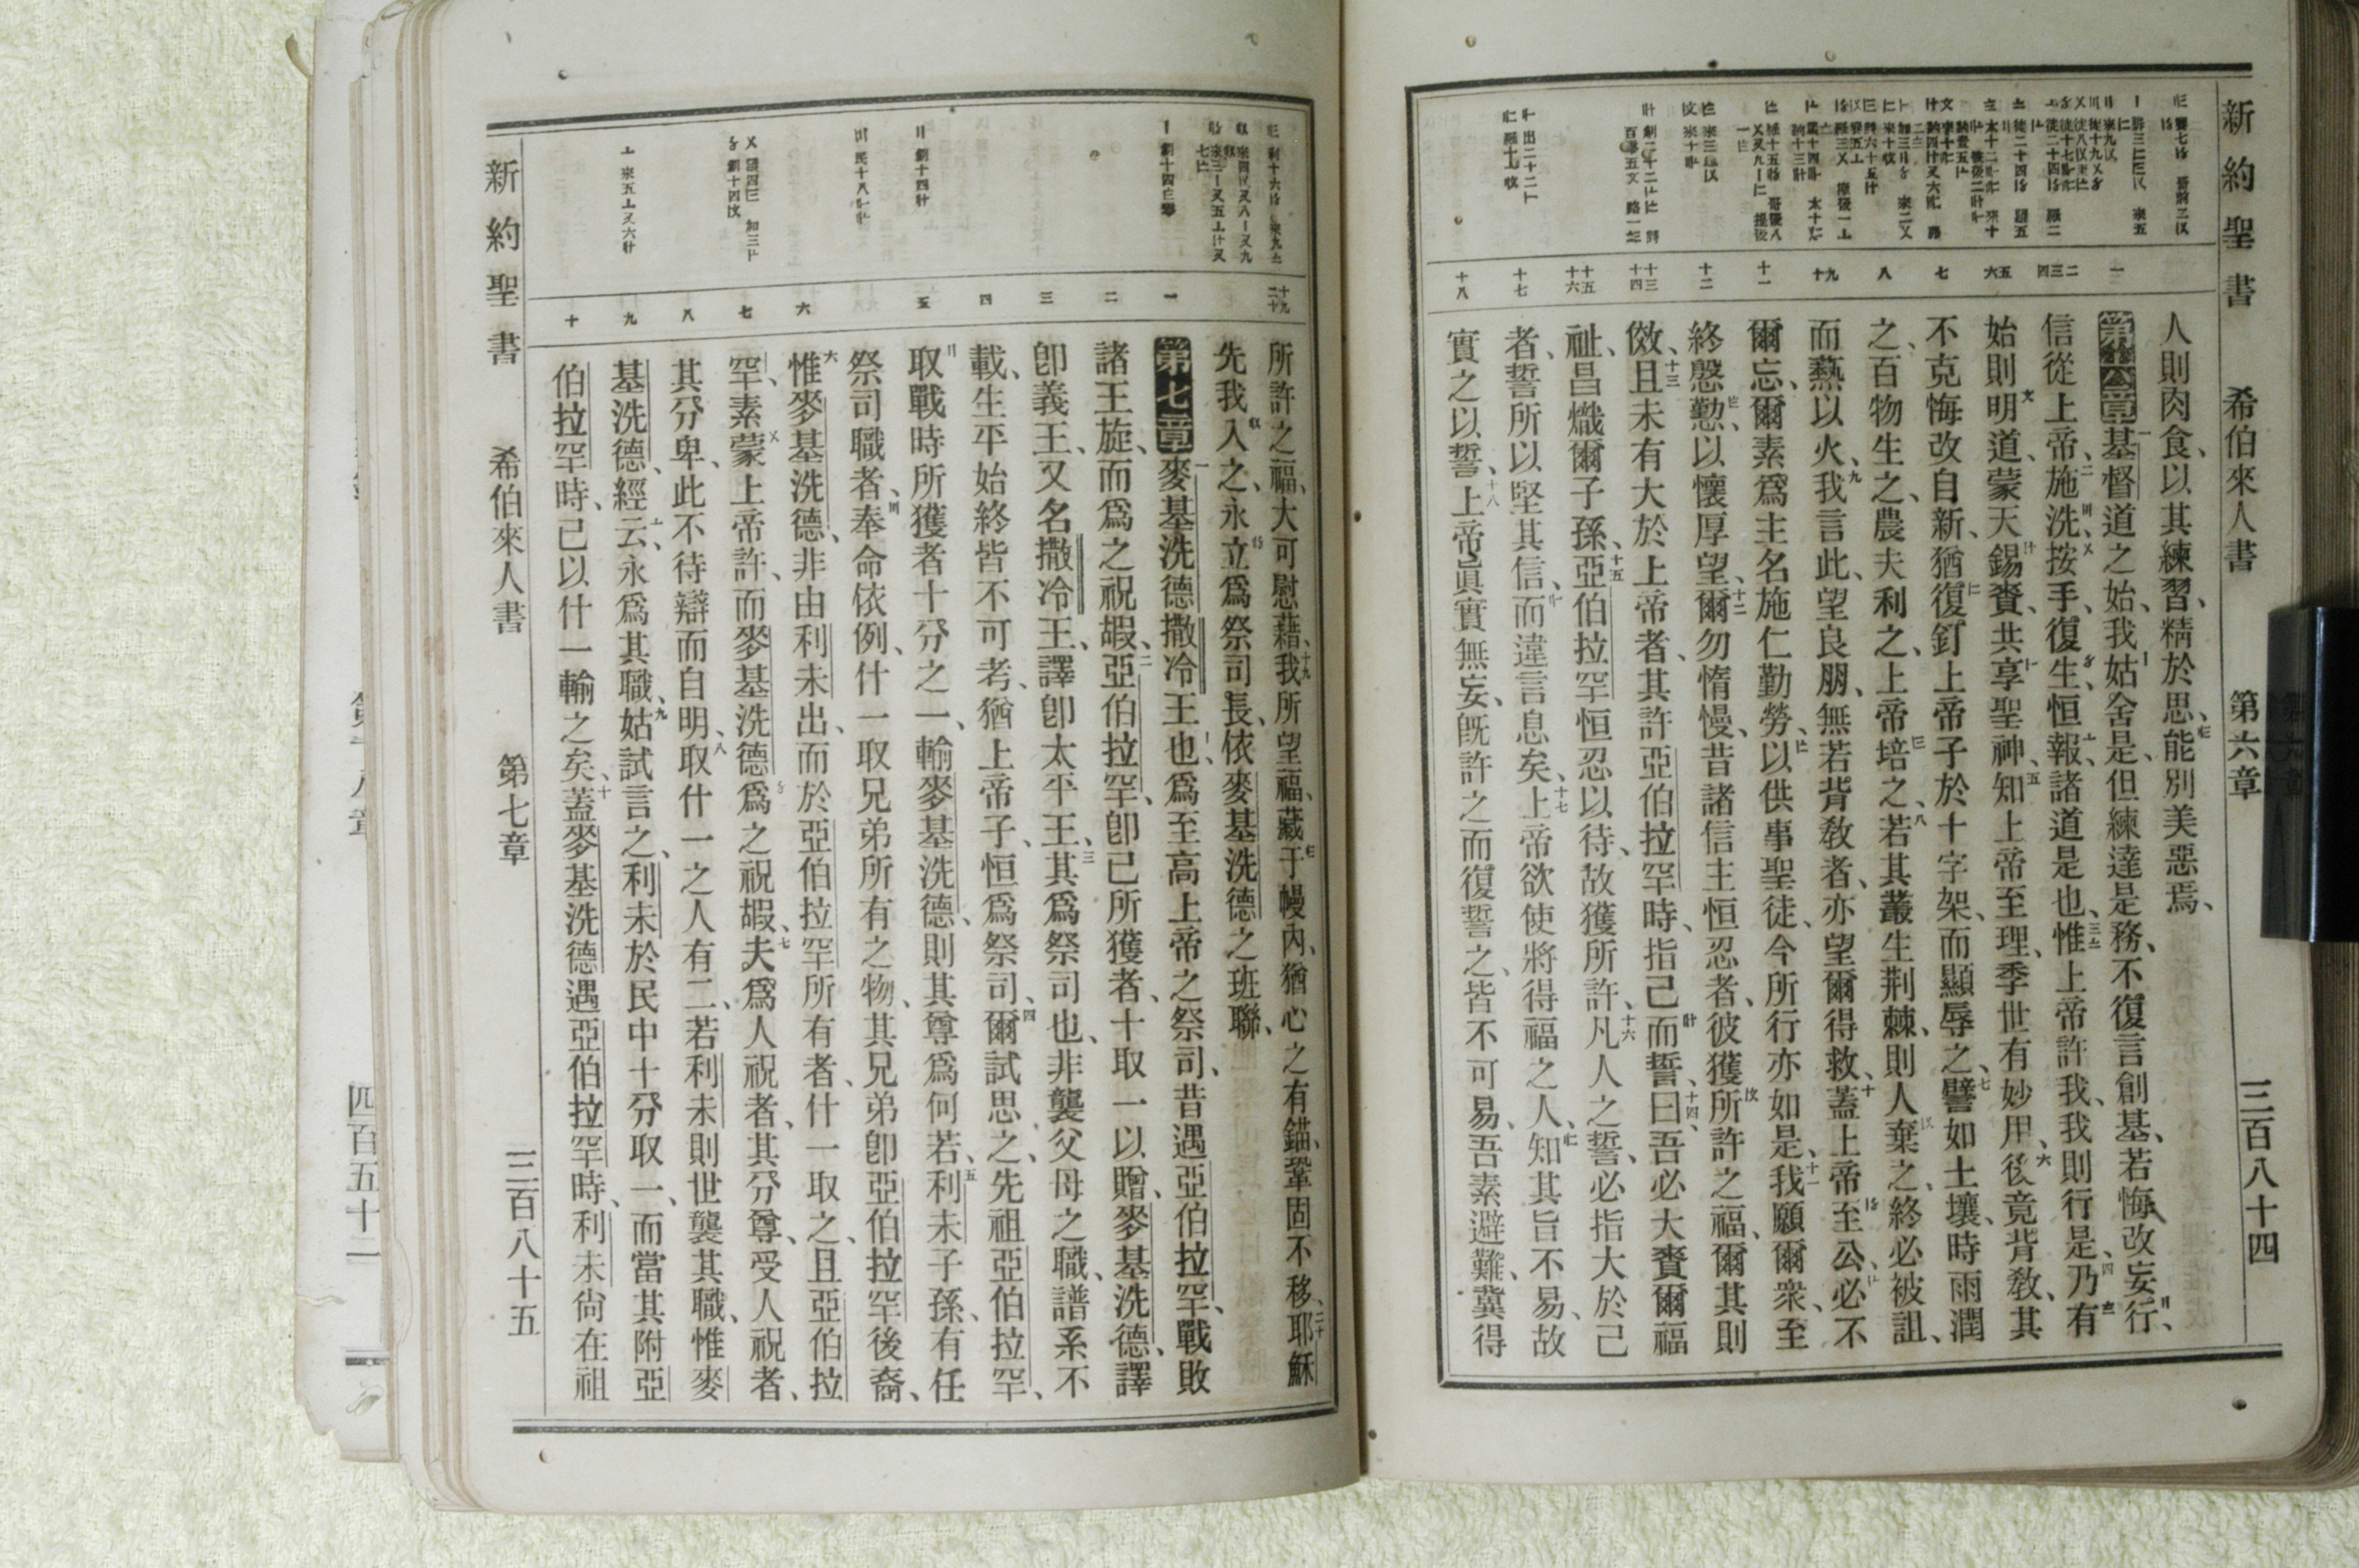 新約聖書 希伯來人書 第六章 三百八十四
人則肉食、以其練習、精於思、能別美惡焉、
第六章 基督道之始、我姑舍是、但練達是務、不復言創基、若悔改妄行、
信從上帝、施洗、按手、復生、恒報、諸道是也、惟上帝許我、我則行是、乃有
始則明道、蒙天錫賚、共享聖神、知上帝至理、季世有妙用、後竟背敎、其
不克悔改自新、猶復釘上帝子於十字架、而顯辱之、譬如土壤、時雨潤
之、百物生之、農夫利之、上帝培之、若其叢生荆棘、則人棄之、終必被詛、
而爇以火、我言此、望良朋、無若背敎者、亦望爾得救、蓋上帝至公、必不
爾忘、爾素爲主名施仁勤勞、以供事聖徒、今所行亦如是、我願爾衆、至
終慇懃、以懷厚望、爾勿惰慢、昔諸信主恒忍者、彼獲所許之福、爾其則
傚、且未有大於上帝者、其許亞伯拉罕時、指己而誓、曰、吾必大賚爾福
祉、昌熾爾子孫、亞伯拉罕恒忍以待、故獲所許、凡人之誓、必指大於己
者、誓所以堅其信、而違言息矣、上帝欲使將得福之人、知其旨不易、故
實之以誓、上帝眞實無妄、旣許之而復誓之、皆不可易、吾素避難、冀得
所許之福、大可慰藉、我所望福、藏于幔內、猶心之有錨、鞏固不移、耶穌
先我入之、永立爲祭司長、依麥基洗德之班聯、
第七章 麥基洗德撒冷王也、爲至高上帝之祭司、昔遇亞伯拉罕、戰敗
諸王旋、而爲之祝嘏、亞伯拉罕、卽己所獲者、十取一以贈、麥基洗德、譯
卽義王、又名撒冷王、譯卽太平王、其爲祭司也、非襲父母之職、譜系不
載、生平始終皆不可考、猶上帝子、恒爲祭司、爾試思之、先祖亞伯拉罕、
取戰時所獲者十分之一、輸麥基洗德、則其尊爲何若、利未子孫、有任
祭司職者、奉命依例、什一取兄弟所有之物、其兄弟卽亞伯拉罕後裔、
惟麥基洗德、非由利未出、而於亞伯拉罕所有者、什一取之、且亞伯拉
罕、素蒙上帝許、而麥基洗德爲之祝嘏、夫爲人祝者、其分尊、受人祝者、
其分卑、此不待辯而自明、取什一之人有二、若利未則世襲其職、惟麥
基洗德、經云、永爲其職、姑試言之、利未於民中十分取一、而當其附亞
伯拉罕時、己以什一輸之矣、蓋麥基洗德遇亞伯拉罕時、利未尙在祖
新約聖書 希伯來人書 第七章 三百八十五
四百五十一